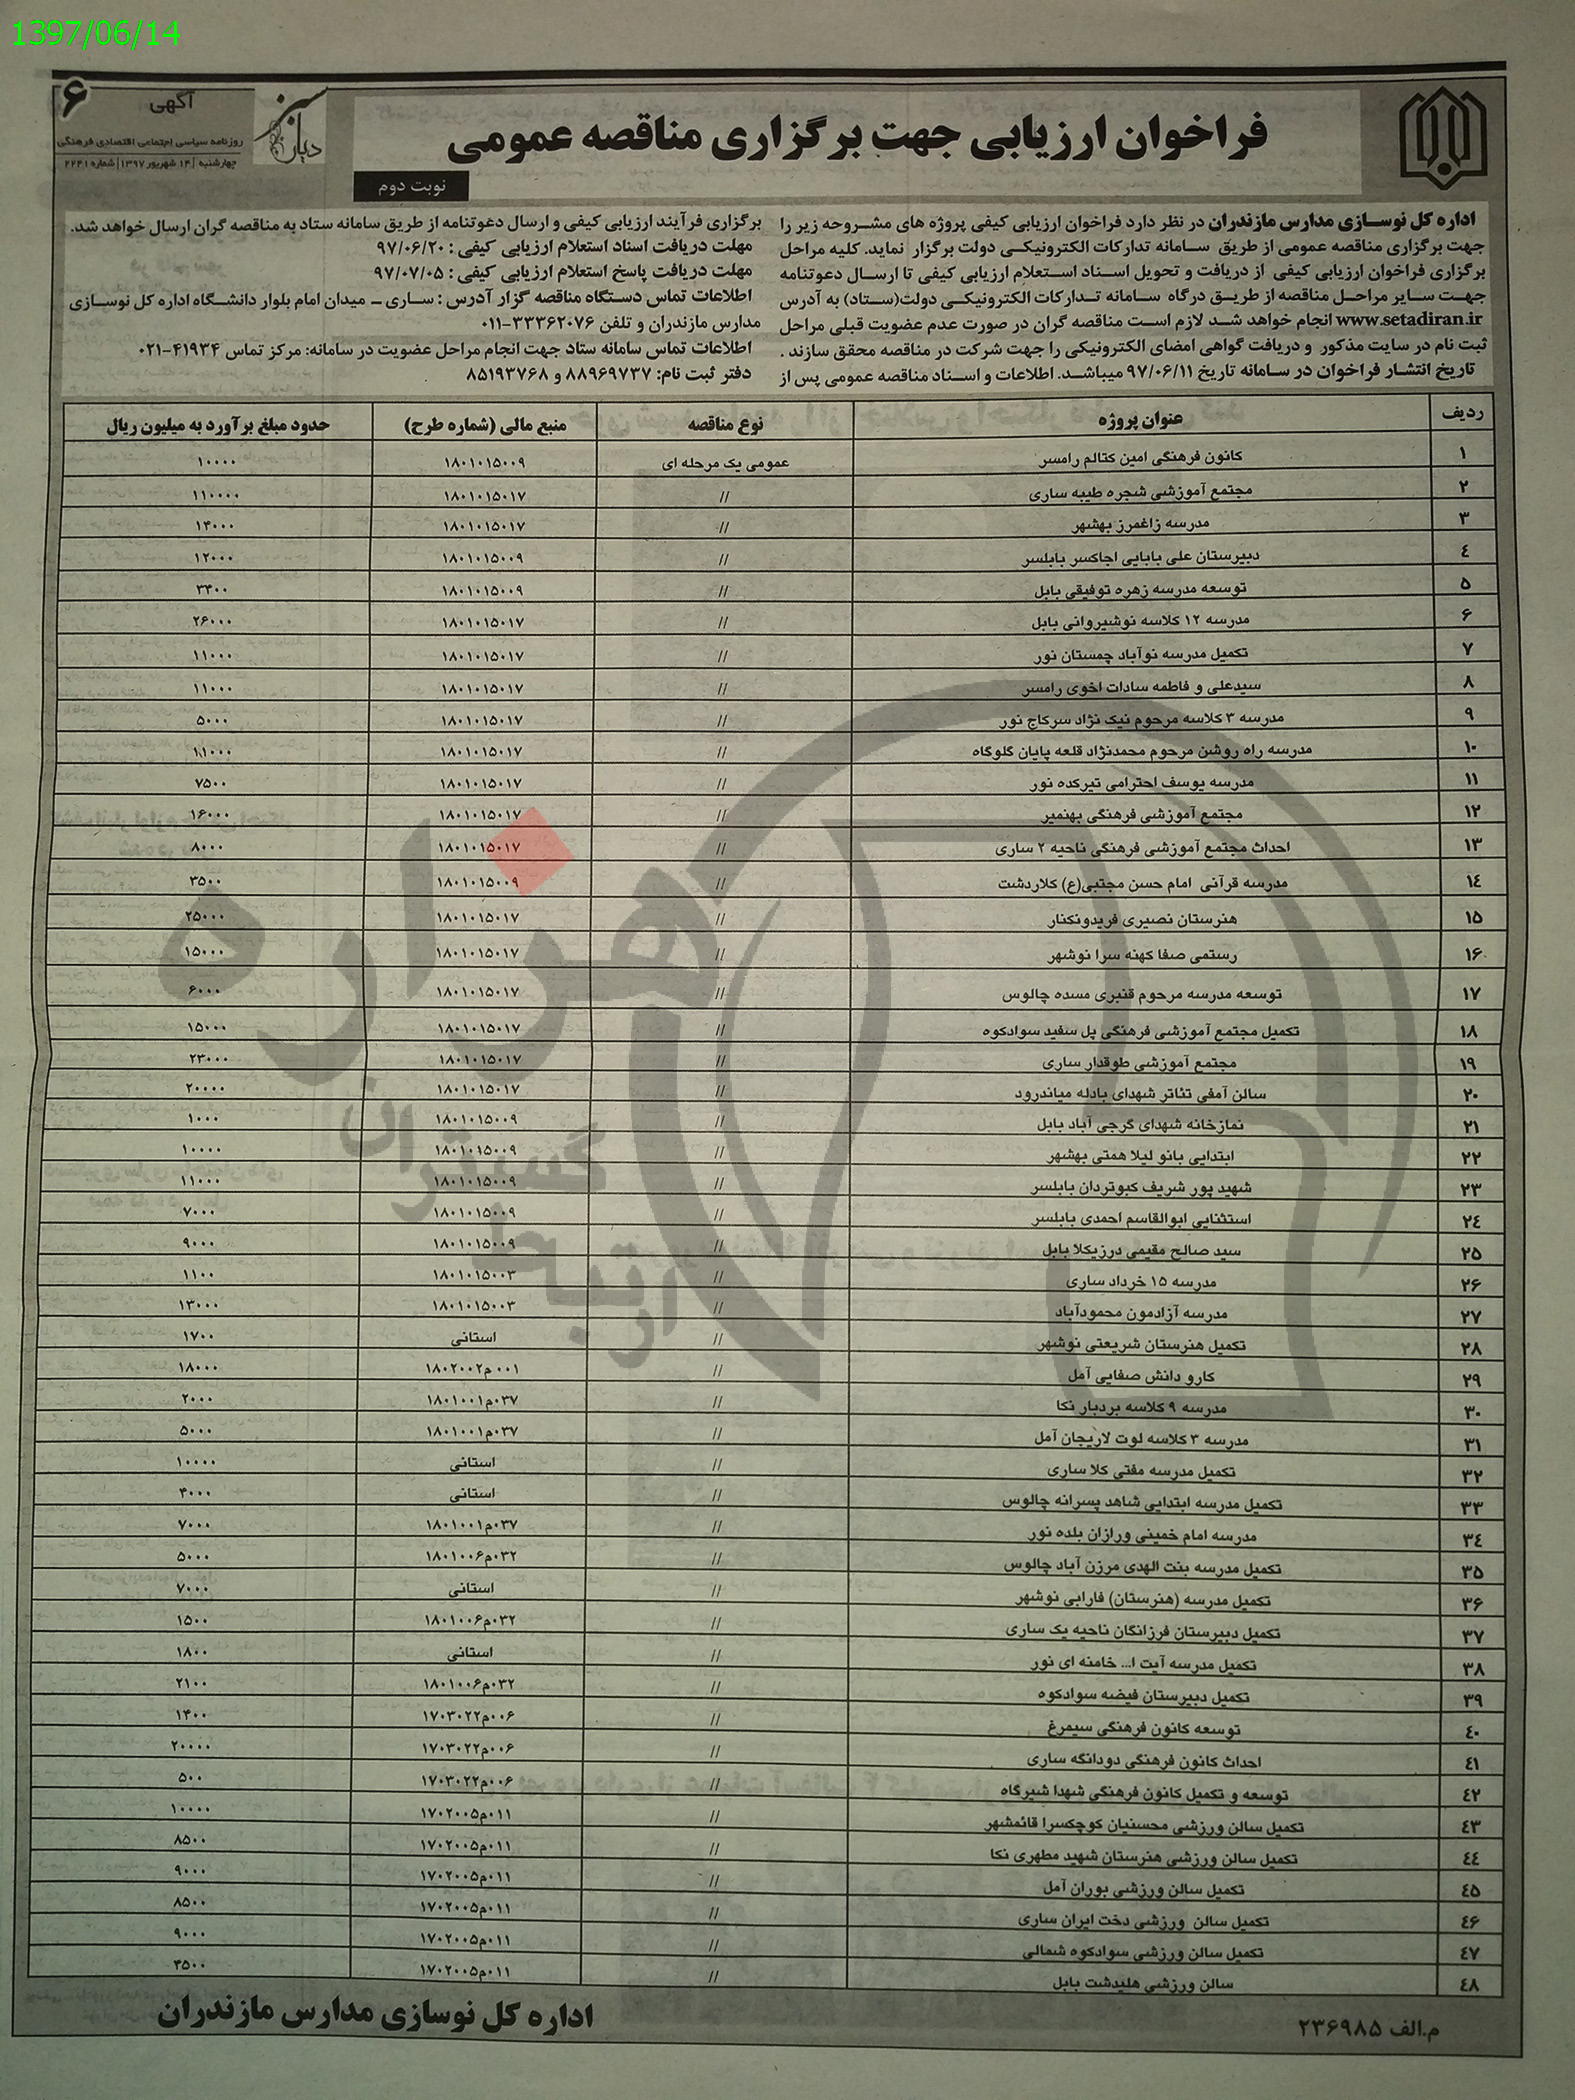 1397/06/14
۶
آگهی
روزنامه سیاسی اجتماعی اقتصادی فرهنگی
چهارشنبه | ۱۴ شهریور ۱۳۹۷ | شماره ۲۲۴۱
دیار سبز
فراخوان ارزیابی جهت برگزاری مناقصه عمومی
نوبت دوم
اداره کل نوسازی مدارس مازندران در نظر دارد فراخوان ارزیابی کیفی پروژه های مشروحه زیر را
جهت برگزاری مناقصه عمومی از طریق سامانه تدارکات الکترونیکی دولت برگزار نماید. کلیه مراحل
برگزاری فراخوان ارزیابی کیفی از دریافت و تحویل اسناد استعلام ارزیابی کیفی تا ارسال دعوتنامه
جهت سایر مراحل مناقصه از طریق درگاه سامانه تدارکات الکترونیکی دولت(ستاد) به آدرس
www.setadiran.ir انجام خواهد شد لازم است مناقصه گران در صورت عدم عضویت قبلی مراحل
ثبت نام در سایت مذکور و دریافت گواهی امضای الکترونیکی را جهت شرکت در مناقصه محقق سازند .
تاریخ انتشار فراخوان در سامانه تاریخ ۹۷/۰۶/۱۱ میباشد. اطلاعات و اسناد مناقصه عمومی پس از
برگزاری فرآیند ارزیابی کیفی و ارسال دعوتنامه از طریق سامانه ستاد به مناقصه گران ارسال خواهد شد.
مهلت دریافت اسناد استعلام ارزیابی کیفی : ۹۷/۰۶/۲۰
مهلت دریافت پاسخ استعلام ارزیابی کیفی : ۹۷/۰۷/۰۵
اطلاعات تماس دستگاه مناقصه گزار آدرس : ساری - میدان امام بلوار دانشگاه اداره کل نوسازی
مدارس مازندران و تلفن ۳۳۳۶۲۰۷۶-۰۱۱
اطلاعات تماس سامانه ستاد جهت انجام مراحل عضویت در سامانه: مرکز تماس ۴۱۹۳۴-۰۲۱
دفتر ثبت نام: ۸۸۹۶۹۷۳۷ و ۸۵۱۹۳۷۶۸
ردیف عنوان پروژه نوع مناقصه منبع مالی (شماره طرح) حدود مبلغ برآورد به میلیون ریال
۱ کانون فرهنگی امین کتالم رامسر عمومی یک مرحله ای ۱۸۰۱۰۱۵۰۰۹ ۱۰۰۰۰
۲ مجتمع آموزشی شجره طیبه ساری // ۱۸۰۱۰۱۵۰۱۷ ۱۱۰۰۰۰
۳ مدرسه زاغمرز بهشهر // ۱۸۰۱۰۱۵۰۱۷ ۱۴۰۰۰
۴ دبیرستان علی بابایی اجاکسر بابلسر // ۱۸۰۱۰۱۵۰۰۹ ۱۲۰۰۰
۵ توسعه مدرسه زهره توفیقی بابل // ۱۸۰۱۰۱۵۰۰۹ ۳۴۰۰
۶ مدرسه ۱۲ کلاسه نوشیروانی بابل // ۱۸۰۱۰۱۵۰۱۷ ۲۶۰۰۰
۷ تکمیل مدرسه نوآباد چمستان نور // ۱۸۰۱۰۱۵۰۱۷ ۱۱۰۰۰
۸ سیدعلی و فاطمه سادات اخوی رامسر // ۱۸۰۱۰۱۵۰۱۷ ۱۱۰۰۰
۹ مدرسه ۳ کلاسه مرحوم نیک نژاد سرکاج نور // ۱۸۰۱۰۱۵۰۱۷ ۵۰۰۰
۱۰ مدرسه راه روشن مرحوم محمدنژاد قلعه پایان گلوگاه // ۱۸۰۱۰۱۵۰۱۷ ۱۱۰۰۰
۱۱ مدرسه یوسف احترامی تیرکده نور // ۱۸۰۱۰۱۵۰۱۷ ۷۵۰۰
۱۲ مجتمع آموزشی فرهنگی بهنمیر // ۱۸۰۱۰۱۵۰۱۷ ۱۶۰۰۰
۱۳ احداث مجتمع آموزشی فرهنگی ناحیه ۲ ساری // ۱۸۰۱۰۱۵۰۱۷ ۸۰۰۰
۱۴ مدرسه قرآنی امام حسن مجتبی(ع) کلاردشت // ۱۸۰۱۰۱۵۰۰۹ ۳۵۰۰
۱۵ هنرستان نصیری فریدونکنار // ۱۸۰۱۰۱۵۰۱۷ ۲۵۰۰۰
۱۶ رستمی صفا کهنه سرا نوشهر // ۱۸۰۱۰۱۵۰۱۷ ۱۵۰۰۰
۱۷ توسعه مدرسه مرحوم قنبری مسده چالوس // ۱۸۰۱۰۱۵۰۱۷ ۶۰۰۰
۱۸ تکمیل مجتمع آموزشی فرهنگی پل سفید سوادکوه // ۱۸۰۱۰۱۵۰۱۷ ۱۵۰۰۰
۱۹ مجتمع آموزشی طوقدار ساری // ۱۸۰۱۰۱۵۰۱۷ ۲۳۰۰۰
۲۰ سالن آمفی تئاتر شهدای بادله میاندرود // ۱۸۰۱۰۱۵۰۱۷ ۲۰۰۰۰
۲۱ نمازخانه شهدای گرجی آباد بابل // ۱۸۰۱۰۱۵۰۰۹ ۱۰۰۰
۲۲ ابتدایی بانو لیلا همتی بهشهر // ۱۸۰۱۰۱۵۰۰۹ ۱۰۰۰۰
۲۳ شهید پور شریف کبوتردان بابلسر // ۱۸۰۱۰۱۵۰۰۹ ۱۱۰۰۰
۲۴ استثنایی ابوالقاسم احمدی بابلسر // ۱۸۰۱۰۱۵۰۰۹ ۷۰۰۰
۲۵ سید صالح مقیمی درزیکلا بابل // ۱۸۰۱۰۱۵۰۰۹ ۹۰۰۰
۲۶ مدرسه ۱۵ خرداد ساری // ۱۸۰۱۰۱۵۰۰۳ ۱۱۰۰
۲۷ مدرسه آزادمون محمودآباد // ۱۸۰۱۰۱۵۰۰۳ ۱۳۰۰۰
۲۸ تکمیل هنرستان شریعتی نوشهر // استانی ۱۷۰۰
۲۹ کارو دانش صفایی آمل // ۱۸۰۲۰۰۲م۰۰۱ ۱۸۰۰۰
۳۰ مدرسه ۹ کلاسه بردبار نکا // ۱۸۰۱۰۰۱م۰۳۷ ۲۰۰۰
۳۱ مدرسه ۳ کلاسه لوت لاریجان آمل // ۱۸۰۱۰۰۱م۰۳۷ ۵۰۰۰
۳۲ تکمیل مدرسه مفتی کلا ساری // استانی ۱۰۰۰۰
۳۳ تکمیل مدرسه ابتدایی شاهد پسرانه چالوس // استانی ۴۰۰۰
۳۴ مدرسه امام خمینی ورازان بلده نور // ۱۸۰۱۰۰۱م۰۳۷ ۷۰۰۰
۳۵ تکمیل مدرسه بنت الهدی مرزن آباد چالوس // ۱۸۰۱۰۰۶م۰۳۲ ۵۰۰۰
۳۶ تکمیل مدرسه (هنرستان) فارابی نوشهر // استانی ۷۰۰۰
۳۷ تکمیل دبیرستان فرزانگان ناحیه یک ساری // ۱۸۰۱۰۰۶م۰۳۲ ۱۵۰۰
۳۸ تکمیل مدرسه آیت ا... خامنه ای نور // استانی ۱۸۰۰
۳۹ تکمیل دبیرستان فیضه سوادکوه // ۱۸۰۱۰۰۶م۰۳۲ ۲۱۰۰
۴۰ توسعه کانون فرهنگی سیمرغ // ۱۷۰۳۰۲۲م۰۰۶ ۱۴۰۰
۴۱ احداث کانون فرهنگی دودانگه ساری // ۱۷۰۳۰۲۲م۰۰۶ ۲۰۰۰۰
۴۲ توسعه و تکمیل کانون فرهنگی شهدا شیرگاه // ۱۷۰۳۰۲۲م۰۰۶ ۵۰۰
۴۳ تکمیل سالن ورزشی محسنیان کوچکسرا قائمشهر // ۱۷۰۲۰۰۵م۰۱۱ ۱۰۰۰۰
۴۴ تکمیل سالن ورزشی هنرستان شهید مطهری نکا // ۱۷۰۲۰۰۵م۰۱۱ ۸۵۰۰
۴۵ تکمیل سالن ورزشی بوران آمل // ۱۷۰۲۰۰۵م۰۱۱ ۹۰۰۰
۴۶ تکمیل سالن ورزشی دخت ایران ساری // ۱۷۰۲۰۰۵م۰۱۱ ۸۵۰۰
۴۷ تکمیل سالن ورزشی سوادکوه شمالی // ۱۷۰۲۰۰۵م۰۱۱ ۹۰۰۰
۴۸ سالن ورزشی هلیدشت بابل // ۱۷۰۲۰۰۵م۰۱۱ ۴۵۰۰
اداره کل نوسازی مدارس مازندران
م.الف ۲۳۶۹۸۵
هزاره